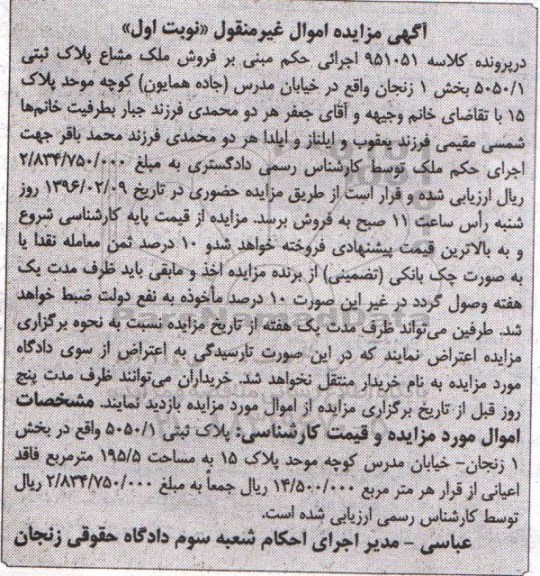 آگهی مزایده اموال غیرمنقول «نوبت اول»
درپرونده کلاسه ۹۵۱۰۵۱ اجرائی حکم مبنی بر فروش ملک مشاع پلاک ثبتی
۵۰۵۰/۱ بخش ۱ زنجان واقع در خیابان مدرس (جاده همایون) کوچه موحد پلاک
۱۵ با تقاضای خانم وجیهه و آقای جعفر هر دو محمدی فرزند جبار بطرفیت خانم‌ها
شمسی مقیمی فرزند یعقوب و ایلناز و ایلدا هر دو محمدی فرزند محمد باقر جهت
اجرای حکم ملک توسط کارشناس رسمی دادگستری به مبلغ ۲/۸۳۴/۷۵۰/۰۰۰
ریال ارزیابی شده و قرار است از طریق مزایده حضوری در تاریخ ۱۳۹۶/۰۲/۰۹ روز
شنبه رأس ساعت ۱۱ صبح به فروش برسد. مزایده از قیمت پایه کارشناسی شروع
و به بالاترین قیمت پیشنهادی فروخته خواهد شدو ۱۰ درصد ثمن معامله نقدا یا
به صورت چک بانکی (تضمینی) از برنده مزایده اخذ و مابقی باید ظرف مدت یک
هفته وصول گردد در غیر این صورت ۱۰ درصد مأخوذه به نفع دولت ضبط خواهد
شد. طرفین می‌تواند ظرف مدت یک هفته از تاریخ مزایده نسبت به نحوه برگزاری
مزایده اعتراض نمایند که در این صورت تارسیدگی به اعتراض از سوی دادگاه
مورد مزایده به نام خریدار منتقل نخواهد شد. خریداران می‌توانند ظرف مدت پنج
روز قبل از تاریخ برگزاری مزایده از اموال مورد مزایده بازدید نمایند. مشخصات
اموال مورد مزایده و قیمت کارشناسی: پلاک ثبتی ۵۰۵۰/۱ واقع در بخش
۱ زنجان- خیابان مدرس کوچه موحد پلاک ۱۵ به مساحت ۱۹۵/۵ مترمربع فاقد
اعیانی از قرار هر متر مربع ۱۴/۵۰۰/۰۰۰ ریال جمعاً به مبلغ ۲/۸۳۴/۷۵۰/۰۰۰ ریال
توسط کارشناس رسمی ارزیابی شده است.
عباسی - مدیر اجرای احکام شعبه سوم دادگاه حقوقی زنجان
ParsNamadData